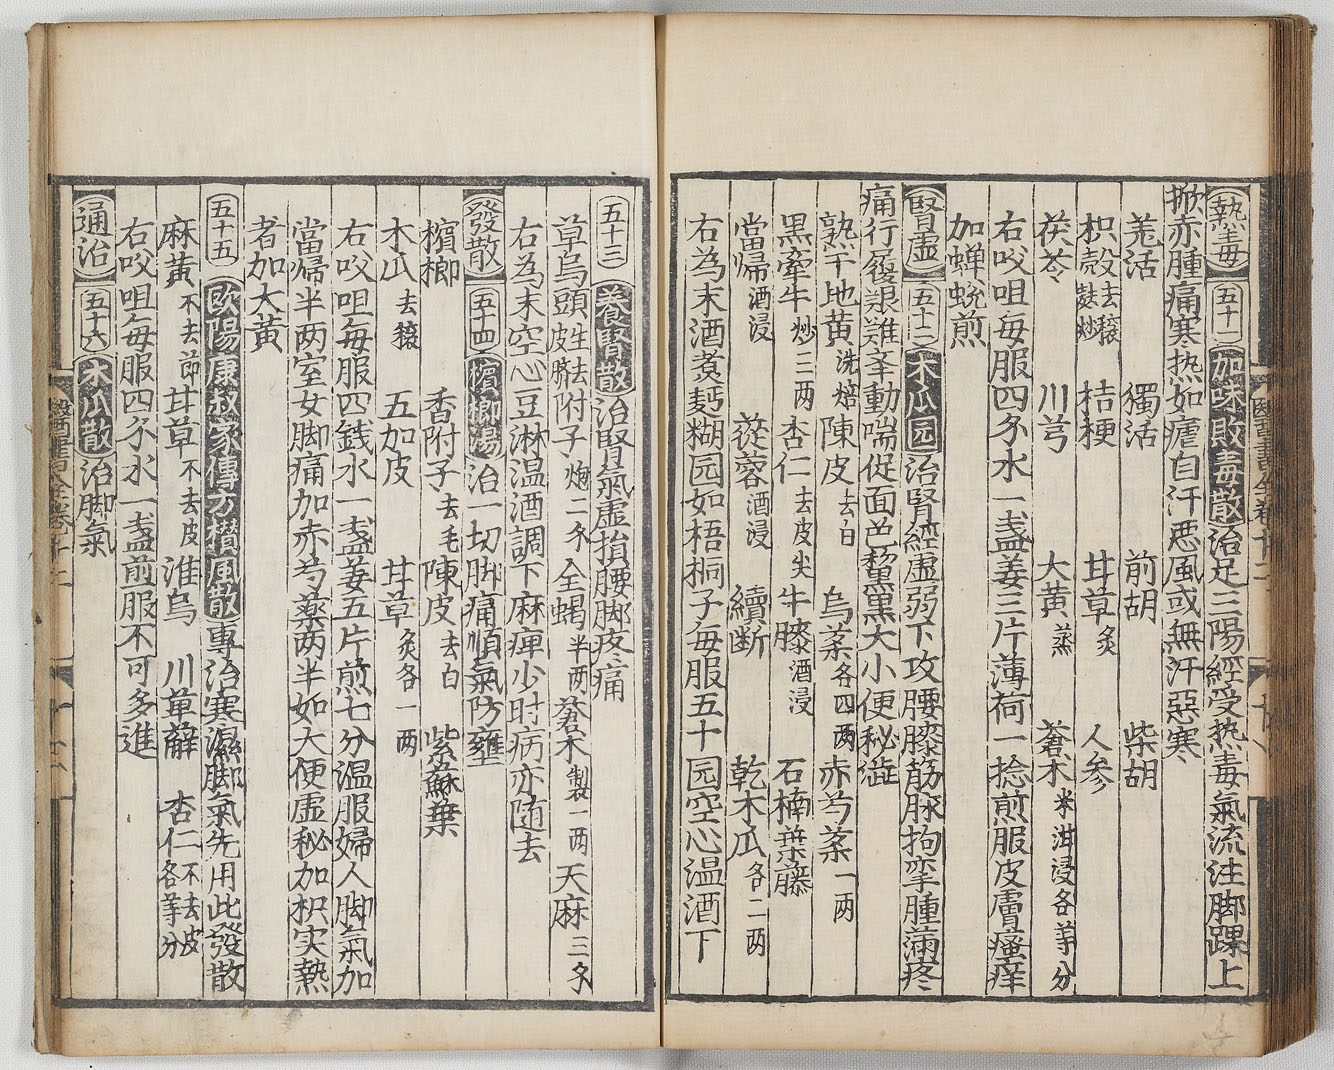 熱毒 五十一 加味敗毒散 治足三陽經受热毒氣流注脚踝上
掀赤腫痛寒热如瘧自汗恶風或無汗惡寒
羗活 獨活 前胡 柴胡
枳殼去穰麩炒 桔梗 甘草炙 人参
茯苓 川芎 大黄蒸 蒼术米泔浸各等分
右㕮咀每服四夕水一盞姜三片薄荷一捻煎服皮膚瘙痒
加蝉蛻煎
腎虚 五十二 木瓜园 治腎經虚弱下攻腰膝筋脉拘挛腫滿疼
痛行履艱難举動喘促面色黧黑大小便秘澁
熟干地黄洗焙 陳皮去白 烏药各四两 赤芍药一两
黒牽牛炒三两 杏仁去皮尖 牛膝酒浸 石楠葉藤
當帰酒浸 蓯蓉酒浸 續断 乾木瓜各二两
右為末酒煮麪糊园如梧桐子每服五十园空心温酒下
五十三 養腎散 治腎氣虚損腰脚疼痛
草烏頭生去皮臍 附子炮二夕 全蝎半两 蒼术製一两 天麻三夕
右為末空心豆淋温酒調下麻痺少时病亦随去
發散 五十四 檳榔湯 治一切脚痛順氣防壅
檳榔 香附子去毛 陳皮去白 紫蘇葉
木瓜去穰 五加皮 甘草炙各一两
右㕮咀每服四錢水一盞姜五片煎七分温服婦人脚氣加
當帰半两室女脚痛加赤芍藥两半如大便虚秘加枳实熱
者加大黄
五十五 欧陽康叔家傳方攢風散 專治寒濕脚氣先用此發散
麻黄不去節 甘草不去皮 淮烏 川萆薢 杏仁不去皮各等分
右㕮咀每服四夕水一盞前服不可多進
通治 五十六 木瓜散 治脚氣